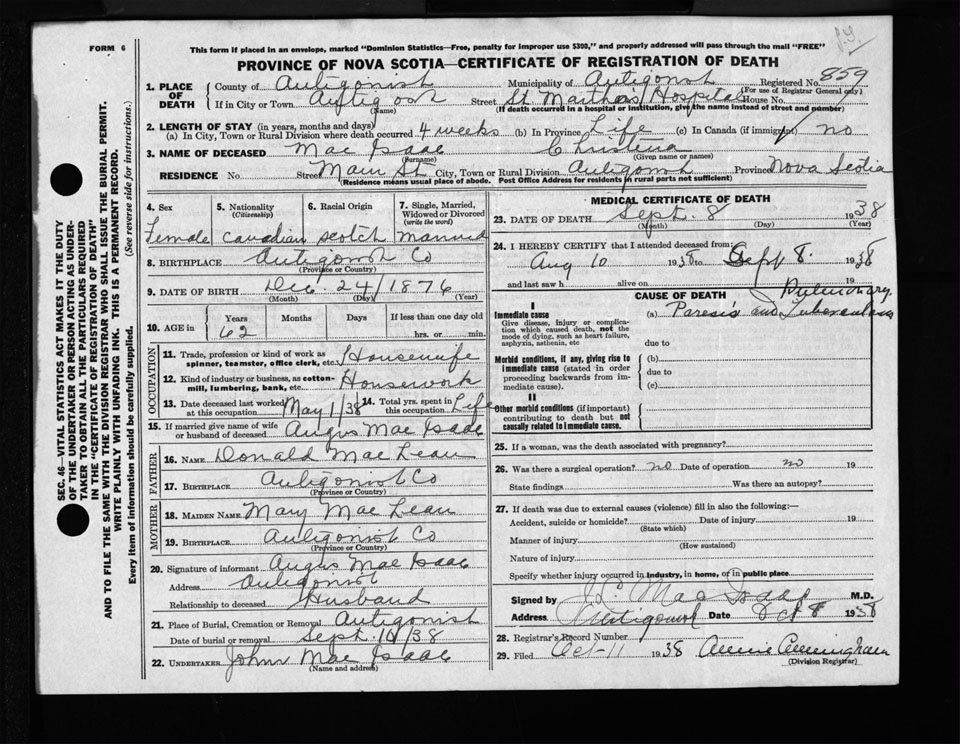 J.Y.
FORM 6
This form if placed in an envelope, marked "Dominion Statistics—Free, penalty for improper use $300," and properly addressed will pass through the mail "FREE"
PROVINCE OF NOVA SCOTIA—CERTIFICATE OF REGISTRATION OF DEATH
1. PLACE OF DEATH County of Antigonish Municipality of Antigonish Registered No. 859
(For use of Registrar General only)
If in City or Town Antigonish Street St. Martha's Hospital House No.
(Name) (If death occurred in a hospital or institution, give the name instead of street and number)
2. LENGTH OF STAY (in years, months and days)
(a) In City, Town or Rural Division where death occurred 4 weeks (b) In Province Life (c) In Canada (if immigrant) no
3. NAME OF DECEASED Mac Isaac Christena
(Surname) (Given name or names)
RESIDENCE No. Street Main St City, Town or Rural Division Antigonish Province Nova Scotia
(Residence means usual place of abode. Post Office Address for residents in rural parts not sufficient)
4. Sex 5. Nationality (Citizenship) 6. Racial Origin 7. Single, Married, Widowed or Divorced (write the word)
Female Canadian Scotch Married
8. BIRTHPLACE Antigonish Co
(Province or Country)
9. DATE OF BIRTH Dec. 24/1876
(Month) (Day) (Year)
10. AGE in Years Months Days If less than one day old
62 hrs. or min.
OCCUPATION
11. Trade, profession or kind of work as spinner, teamster, office clerk, etc. Housewife
12. Kind of industry or business, as cotton-mill, lumbering, bank, etc. Housework
13. Date deceased last worked at this occupation May 1/38 14. Total yrs. spent in this occupation Life
15. If married give name of wife or husband of deceased Angus Mac Isaac
FATHER
16. NAME Donald Mac Lean
17. BIRTHPLACE Antigonish Co
(Province or Country)
MOTHER
18. MAIDEN NAME Mary Mac Lean
19. BIRTHPLACE Antigonish Co
(Province or Country)
20. Signature of informant Angus Mac Isaac
Address Antigonish
Relationship to deceased Husband
21. Place of Burial, Cremation or Removal Antigonish
Date of burial or removal Sept. 10/38
22. UNDERTAKER John Mac Isaac
(Name and address)
MEDICAL CERTIFICATE OF DEATH
23. DATE OF DEATH Sept. 8 1938
(Month) (Day) (Year)
24. I HEREBY CERTIFY that I attended deceased from:
Aug 10 1938 to Sept 8. 1938
and last saw h alive on 19
CAUSE OF DEATH
I
Immediate cause
Give disease, injury or complication which caused death, not the mode of dying, such as heart failure, asphyxia, asthenia, etc
(a) Paresis and Pulmonary Tuberculosis
due to
Morbid conditions, if any, giving rise to immediate cause (stated in order proceeding backwards from immediate cause).
(b)
due to
(c)
II
Other morbid conditions (if important) contributing to death but not causally related to immediate cause.
25. If a woman, was the death associated with pregnancy?
26. Was there a surgical operation? no Date of operation no 19
State findings Was there an autopsy?
27. If death was due to external causes (violence) fill in also the following:—
Accident, suicide or homicide? Date of injury 19
(State which)
Manner of injury
(How sustained)
Nature of injury
Specify whether injury occurred in industry, in home, or in public place
Signed by M.D.
Address Antigonish Date Oct 8 1938
28. Registrar's Record Number
29. Filed Oct-11 1938 Annie Cunningham
(Division Registrar)
SEC. 46—VITAL STATISTICS ACT MAKES IT THE DUTY
OF THE UNDERTAKER OR PERSON ACTING AS UNDER-
TAKER TO OBTAIN ALL THE PARTICULARS REQUIRED
IN THE "CERTIFICATE OF REGISTRATION OF DEATH"
AND TO FILE THE SAME WITH THE DIVISION REGISTRAR WHO SHALL ISSUE THE BURIAL PERMIT.
WRITE PLAINLY WITH UNFADING INK. THIS IS A PERMANENT RECORD.
Every item of information should be carefully supplied. (See reverse side for instructions.)